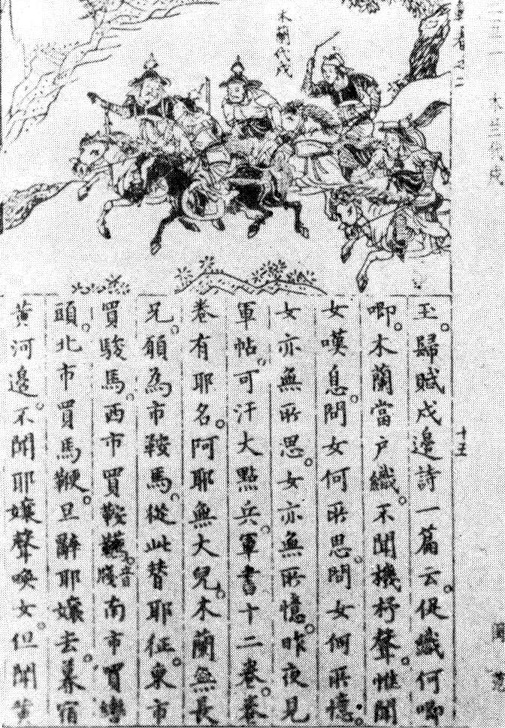 二三一 木兰代戍
木蘭代戍
玉。歸賦戍邊詩一篇云。促織何唧
唧。木蘭當户織。不聞機杼聲。惟聞
女嘆息。問女何所思。問女何所憶。
女亦無所思。女亦無所憶。昨夜見
軍帖。可汗大點兵。軍書十二卷。卷
卷有耶名。阿耶無大兒。木蘭無長
兄。願為市鞍馬。從此替耶征。東市
買駿馬。西市買鞍韉。音牋南市買轡
頭。北市買馬鞭。旦辭耶孃去。暮宿
黃河邊。不聞耶孃聲喚女。但聞黃